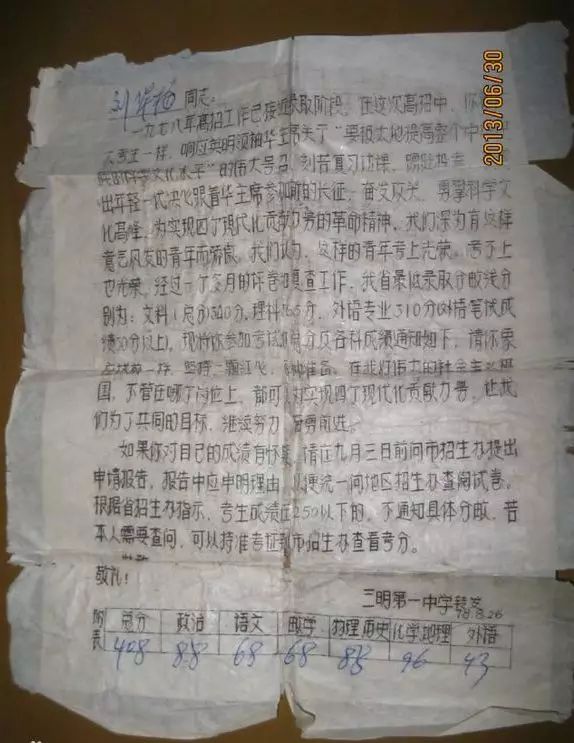 2013/06/30
刘 同志:
一九七八年高招工作已接近录取阶段。在这次高招中,你
考生一样,响应英明领袖华主席关于"要极大地提高整个中
科学文化水平"的伟大号召,刻苦复习功课,踊跃报考,
出年轻一代决心跟着华主席参加新的长征,奋发攻关,勇攀科学文
化高峰,为实现四个现代化贡献力量的革命精神。我们深为有这样
意气风发的青年而骄傲。我们认为,这样的青年考上光荣,考不上
也光荣。经过一个多月的评卷和复查工作,我省最低录取分数线分
别为:文科(总分)340分,理科365分,外语专业310分(外语笔试成
绩50分以上)。现将你参加考试的总分及各科成绩通知如下,请你象
一样,坚持一颗红心,准备。在我们伟大的社会主义祖
国,不管在哪个岗位上,都可以对实现四个现代化贡献力量,让我
们为了共同的目标,继续努力,奋勇前进。
如果你对自己的成绩有怀疑,请在九月三日前向市招生办提出
申请报告,报告中应申明理由,以便统一向地区招生办查阅试卷。
根据省招生办指示,考生成绩在250以下的,不通知具体分数,若
本人需要查问,可以持准考证到市招生办查看考分。
敬礼!
三明第一中学转发
78.8.26
附表 总分 政治 语文 数学 物理 历史 化学 地理 外语
408 88 68 68 88 96 43